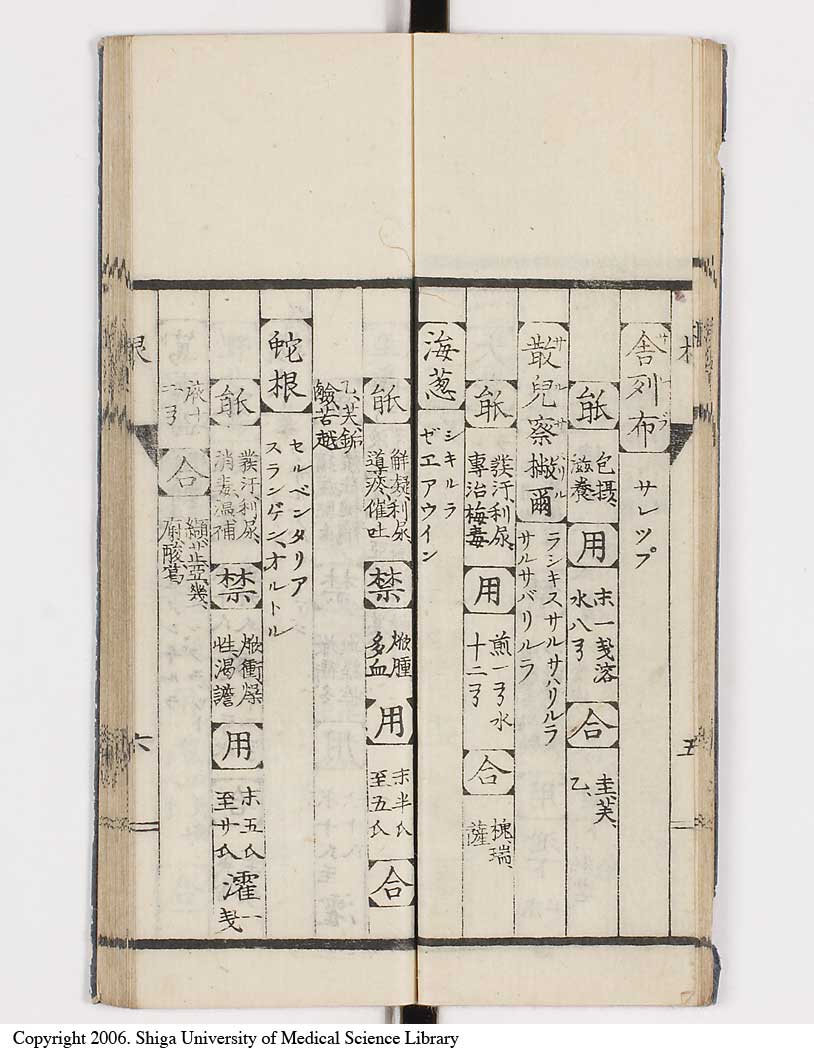 舎列布 サレップ
能 包摂、滋養 用 末一戔溶水八ヲ 合 圭、芙、乙、
葠兒察撥爾 ラジキスサルサハリルラ サルサバリルラ
能 発汗、利尿、専治梅毒 用 煎一ヲ水十二ヲ 合 槐、瑞、薩
海葱 シキルラ ゼエアウイン
能 解凝、利尿、導痰、催吐 禁 焮腫多血 用 末半氏至五氏 合
乙、芙、鉐鹸、苦、越
蛇根 セルベンタリア スランゲン、オルトル
能 発汗、利尿、消毒、温補 禁 焮衝、燥性、渇、譫 用 末五氏至廿氏 濯一戔
液十二ヲ 合 纈、芷、亜、幾、府、酸、葛
根 五
根 六
Copyright 2006. Shiga University of Medical Science Library